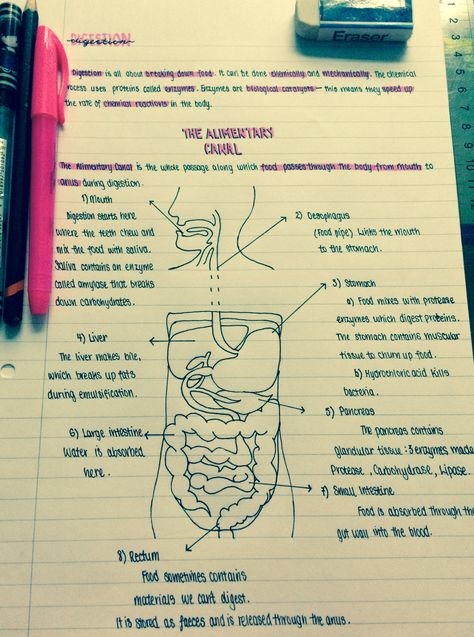 DIGESTION
digestion
Eraser
Digestion is all about breaking down food. It can be done chemically and mechanically. The chemical
process uses proteins called enzymes. Enzymes are biological catalysts – this means they speed up
the rate of chemical reactions in the body.
THE ALIMENTARY
CANAL
The Alimentary Canal is the whole passage along which food passes through the body from mouth to
anus during digestion.
1) Mouth
Digestion starts here
where the teeth chew and
mix the food with saliva.
Saliva contains an enzyme
called amylase that breaks
down carbohydrates.
2) Oesophagus
(Food pipe) Links the mouth
to the stomach.
3) Stomach
a) Food mixes with protease
enzymes which digest proteins.
The stomach contains muscular
tissue to churn up food.
b) Hydrochloric acid kills
bacteria.
4) Liver
The liver makes bile,
which breaks up fats
during emulsification.
5) Pancreas
The pancreas contains
glandular tissue : 3 enzymes made
Protease, Carbohydrase, Lipase.
6) Large intestine
Water is absorbed
here.
7) Small Intestine
Food is absorbed through the
gut wall into the blood.
8) Rectum
Food sometimes contains
materials we cant digest.
It is stored as faeces and is released through the anus.